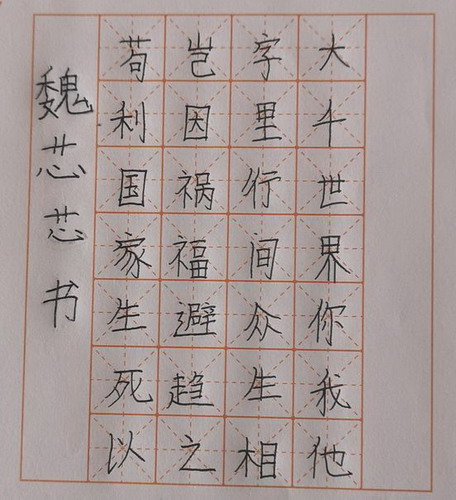 大千世界你我他
字里行间众生相
岂因祸福避趋之
苟利国家生死以
魏芯芯书